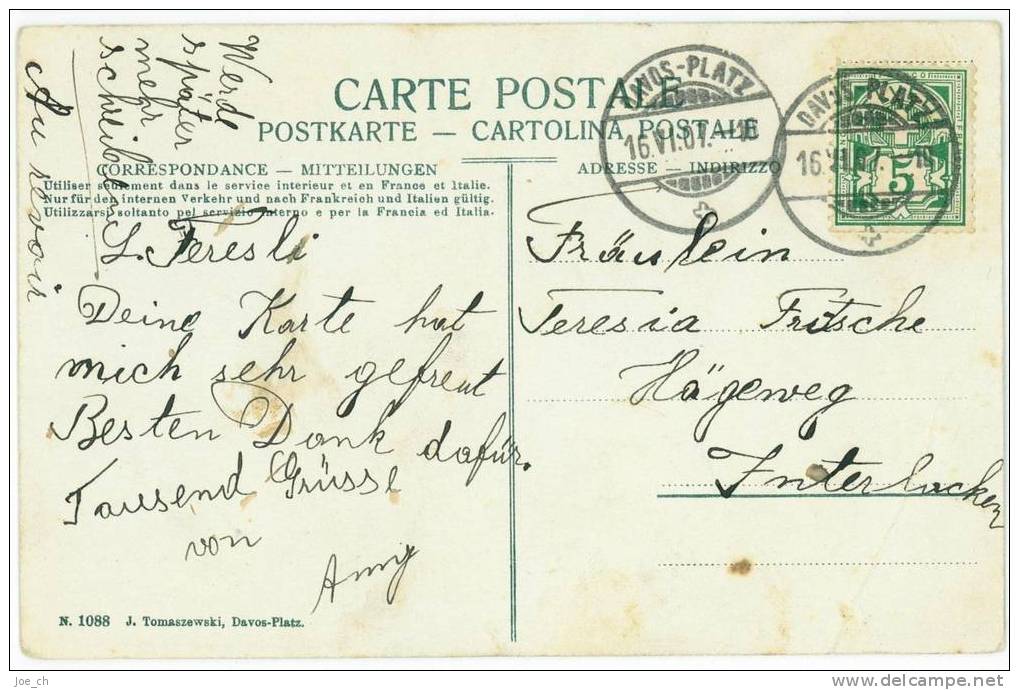 CARTE POSTALE
POSTKARTE — CARTOLINA POSTALE
CORRESPONDANCE — MITTEILUNGEN
Utiliser seulement dans le service interieur et en France et Italie.
Nur für den internen Verkehr und nach Frankreich und Italien gültig.
Utilizzarsi soltanto pel servizio interno e per la Francia ed Italia.
ADRESSE — INDIRIZZO
DAVOS-PLATZ
16.VI.07.
DAVOS-PLATZ
16.VI.07.
5
L. Teresli
Deine Karte hat
mich sehr gefreut
Besten Dank dafür.
Tausend Grüsse
von
Anny
Werde
später
mehr
schreiben
Au revoir
Fräulein
Teresia Fritsche
Hägeweg
Interlacken
N. 1088 J. Tomaszewski, Davos-Platz.
Joe_ch
www.delcampe.net